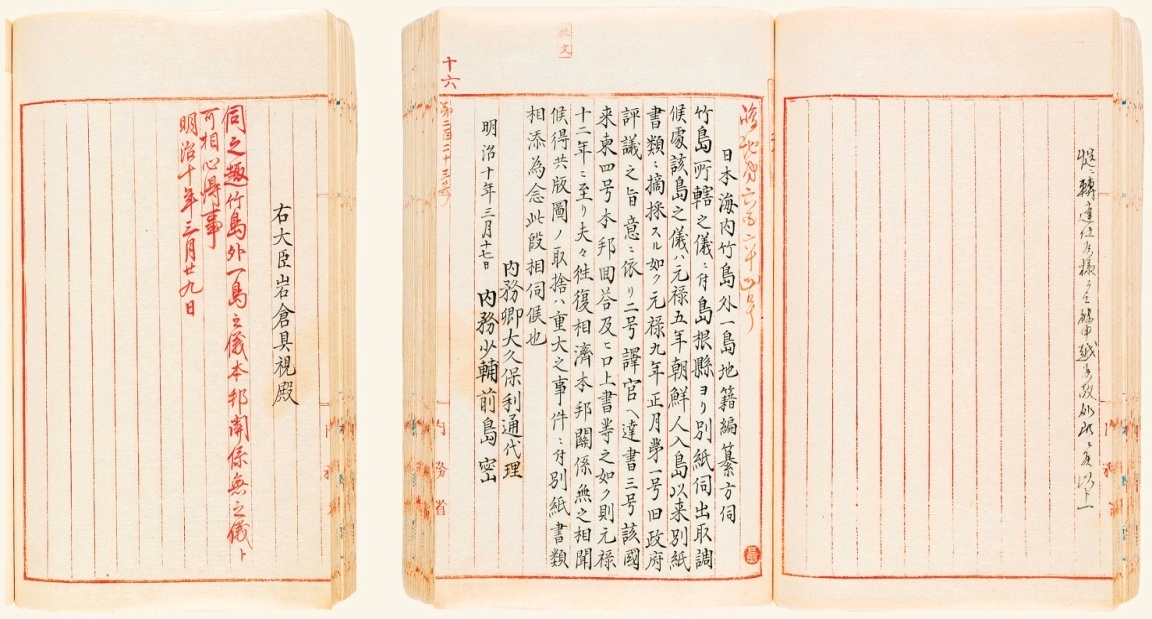 日本海内竹島外一島地籍編纂方伺
竹島所轄之儀ニ付島根縣ヨリ別紙伺出取調
候處該島之儀ハ元禄五年朝鮮人入島以来別紙
書類ニ摘採スル如ク元禄九年正月第一号旧政府
評議之旨意ニ依リ二号譯官ヘ達書三号該國
来柬四号本邦回答及ヒ口上書等之如ク則元禄
十二年ニ至リ夫々往復相濟本邦關係無之相聞
候得共版圖ノ取捨ハ重大之事件ニ付別紙書類
相添為念此段相伺候也
内務卿大久保利通代理
明治十年三月十七日 内務少輔前島密
十六
第二百二十三号
内務省
右大臣岩倉具視殿
伺之趣竹島外一島之儀本邦関係無之儀ト
可相心得事
明治十年三月廿九日